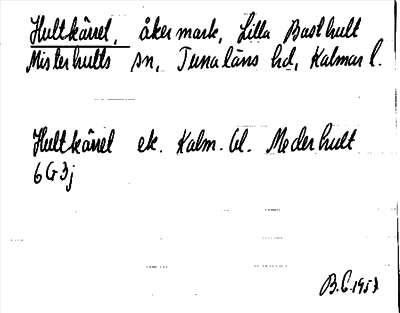 Hultkärret, åkermark, Lilla Basthult
Misterhults sn, Tunaläns hd, Kalmar l.
Hultkärret ek. Kalm. bl. Mederhult
6G3j
B.C. 1953